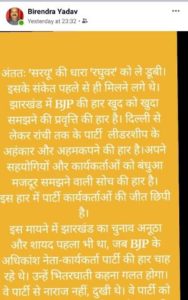 Birendra Yadav
Yesterday at 23:32
अंततः 'सरयू' की धारा 'रघुवर' को ले डूबी।
इसके संकेत पहले से ही मिलने लगे थे।
झारखंड में BJP की हार खुद को खुदा
समझने की प्रवृत्ति की हार है। दिल्ली से
लेकर रांची तक के पार्टी लीडरशीप के
अहंकार और अहमकपने की हार है।अपने
सहयोगियों और कार्यकर्ताओं को बंधुआ
मजदूर समझने वाली सोच की हार है।
इस हार में पार्टी कार्यकर्ताओं की जीत छिपी
है।
इस मायने में झारखंड का चुनाव अनूठा
और शायद पहला भी था, जब BJP के
अधिकांश नेता-कार्यकर्ता पार्टी की हार चाह
रहे थे। उन्हें भितरघाती कहना गलत होगा।
वे पार्टी से नाराज नहीं, दुखी थे। वे पार्टी को